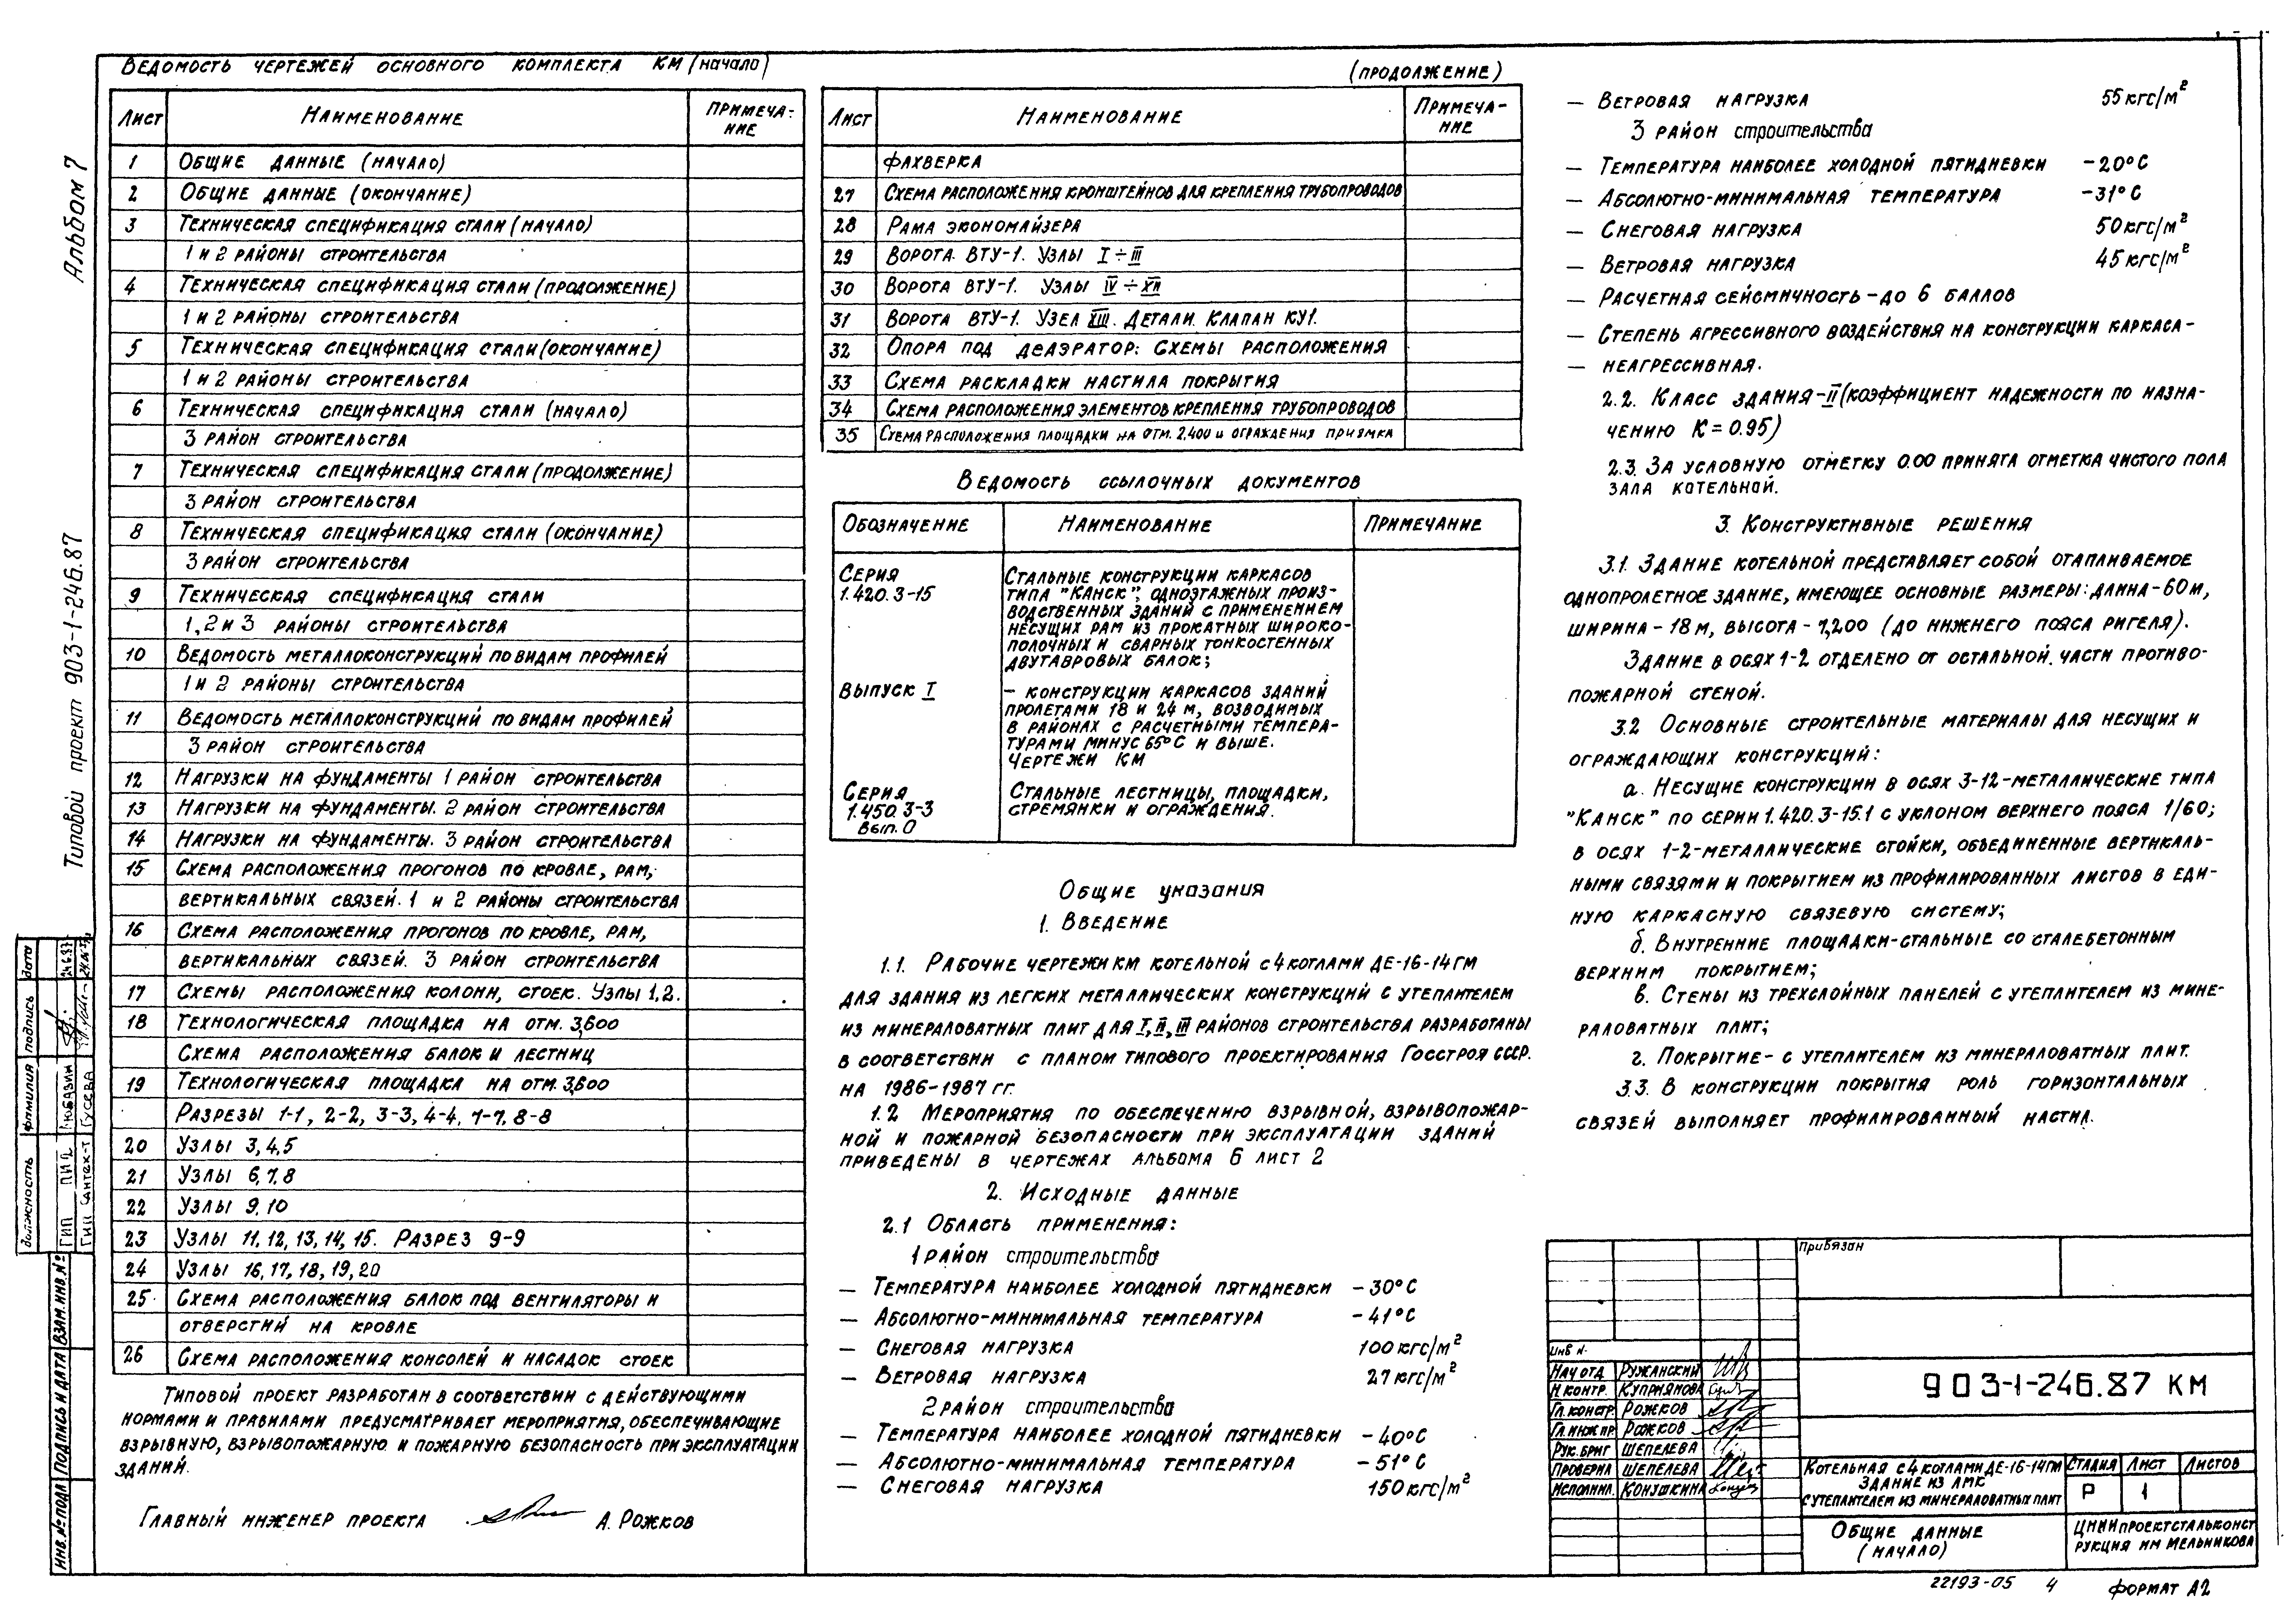 Альбом 7
Типовой проект 903-1-246.87
Ведомость чертежей основного комплекта КМ (начало)
Лист Наименование Примеча-
ние
1 Общие данные (начало)
2 Общие данные (окончание)
3 Техническая спецификация стали (начало)
1 и 2 районы строительства
4 Техническая спецификация стали (продолжение)
1 и 2 районы строительства
5 Техническая спецификация стали (окончание)
1 и 2 районы строительства
6 Техническая спецификация стали (начало)
3 район строительства
7 Техническая спецификация стали (продолжение)
3 район строительства
8 Техническая спецификация стали (окончание)
3 район строительства
9 Техническая спецификация стали
1, 2 и 3 районы строительства
10 Ведомость металлоконструкций по видам профилей
1 и 2 районы строительства
11 Ведомость металлоконструкций по видам профилей
3 район строительства
12 Нагрузки на фундаменты 1 район строительства
13 Нагрузки на фундаменты. 2 район строительства
14 Нагрузки на фундаменты. 3 район строительства
15 Схема расположения прогонов по кровле, рам,
вертикальных связей. 1 и 2 районы строительства
16 Схема расположения прогонов по кровле, рам,
вертикальных связей. 3 район строительства
17 Схемы расположения колонн, стоек. Узлы 1, 2.
18 Технологическая площадка на отм. 3,600
Схема расположения балок и лестниц
19 Технологическая площадка на отм. 3,600
Разрезы 1-1, 2-2, 3-3, 4-4, 7-7, 8-8
20 Узлы 3, 4, 5
21 Узлы 6, 7, 8
22 Узлы 9, 10
23 Узлы 11, 12, 13, 14, 15. Разрез 9-9
24 Узлы 16, 17, 18, 19, 20
25 Схема расположения балок под вентиляторы и
отверстий на кровле
26 Схема расположения консолей и насадок стоек
Типовой проект разработан в соответствии с действующими
нормами и правилами предусматривает мероприятия, обеспечивающие
взрывную, взрывопожарную и пожарную безопасность при эксплуатации
зданий.
Главный инженер проекта А. Рожков
(продолжение)
Лист Наименование Примеча-
ние
фахверка
27 Схема расположения кронштейнов для крепления трубопроводов
28 Рама экономайзера
29 Ворота ВТУ-1. Узлы I ÷ III
30 Ворота ВТУ-1. Узлы IV ÷ XII
31 Ворота ВТУ-1. Узел XIII. Детали. Клапан КУ1.
32 Опора под деаэратор. Схемы расположения
33 Схема раскладки настила покрытия
34 Схема расположения элементов крепления трубопроводов
35 Схема расположения площадки на отм. 2.400 и ограждения приямка
Ведомость ссылочных документов
Обозначение Наименование Примечание
Серия
1.420.3-15
Стальные конструкции каркасов
типа "Канск", одноэтажных произ-
водственных зданий с применением
несущих рам из прокатных широко-
полочных и сварных тонкостенных
двутавровых балок;
Выпуск I
– конструкции каркасов зданий
пролетами 18 и 24 м, возводимых
в районах с расчетными темпера-
турами минус 65°С и выше.
Чертежи КМ
Серия
1.450.3-3
Вып. 0
Стальные лестницы, площадки,
стремянки и ограждения.
Общие указания
1. Введение
1.1. Рабочие чертежи КМ котельной с 4 котлами ДЕ-16-14ГМ
для здания из легких металлических конструкций с утеплителем
из минераловатных плит для I, II, III районов строительства разработаны
в соответствии с планом типового проектирования Госстроя СССР.
на 1986-1987 гг.
1.2 Мероприятия по обеспечению взрывной, взрывопожар-
ной и пожарной безопасности при эксплуатации зданий
приведены в чертежах альбома 6 лист 2
2. Исходные данные
2.1 Область применения:
1 район строительства
– Температура наиболее холодной пятидневки -30°С
– Абсолютно-минимальная температура -41°С
– Снеговая нагрузка 100 кгс/м²
– Ветровая нагрузка 27 кгс/м²
2 район строительства
– Температура наиболее холодной пятидневки -40°С
– Абсолютно-минимальная температура -51°С
– Снеговая нагрузка 150 кгс/м²
– Ветровая нагрузка 55 кгс/м²
3 район строительства
– Температура наиболее холодной пятидневки -20°С
– Абсолютно-минимальная температура -31°С
– Снеговая нагрузка 50 кгс/м²
– Ветровая нагрузка 45 кгс/м²
– Расчетная сейсмичность - до 6 баллов
– Степень агрессивного воздействия на конструкции каркаса -
– неагрессивная.
2.2. Класс здания - II (коэффициент надежности по назна-
чению К = 0.95)
2.3. За условную отметку 0.00 принята отметка чистого пола
зала котельной.
3. Конструктивные решения
3.1. Здание котельной представляет собой отапливаемое
однопролетное здание, имеющее основные размеры: длина - 60 м,
ширина - 18 м, высота - 7,200 (до нижнего пояса ригеля).
Здание в осях 1-2 отделено от остальной части противо-
пожарной стеной.
3.2 Основные строительные материалы для несущих и
ограждающих конструкций:
а. Несущие конструкции в осях 3-12 - металлические типа
"Канск" по серии 1.420.3-15.1 с уклоном верхнего пояса 1/60;
в осях 1-2 - металлические стойки, объединенные вертикаль-
ными связями и покрытием из профилированных листов в еди-
ную каркасную связевую систему;
б. Внутренние площадки - стальные со сталебетонным
верхним покрытием;
в. Стены из трехслойных панелей с утеплителем из мине-
раловатных плит;
г. Покрытие - с утеплителем из минераловатных плит.
3.3. В конструкции покрытия роль горизонтальных
связей выполняет профилированный настил.
должность фамилия подпись дата
ГИП ПИ2 Любазин
ГИП Сантех-т Гусева
Инв. № подл Подпись и дата Взам. инв. №
Привязан
Инв №
Нач отд Ружанский
Н. контр. Куприянова
Гл. констр Рожков
Гл. инж пр Рожков
Рук. бриг Шепелева
Проверил Шепелева
Исполнил. Конушкина
903-1-246.87 КМ
Котельная с 4 котлами ДЕ-16-14ГМ
Здание из ЛМК
с утеплителем из минераловатных плит
Стадия Лист Листов
Р 1
Общие данные
(начало)
ЦНИИпроектстальконст
рукция им Мельникова
22193-05 4 формат А2